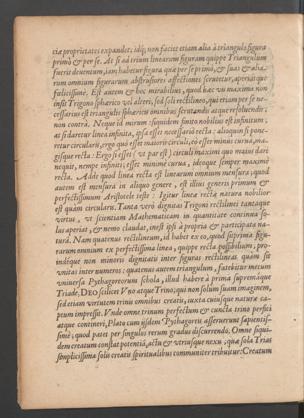 tiæ proprietates expandet; idq; non facit etiam alia à triangulo figura
primò & per se. At si ad trium linearum figuram quippe Triangulum
fuerit deventum, iam habetur figura quæ per se primò, & suas & alia-
rum omnium figurarum abstrusiores affectiones scrutetur, aperiatque
fœlicissimè. Est autem & hoc mirabilius, quod hæc vis maxima non
insit Trigono sphærico vel alteri, sed soli rectilineo, qui etiam per se ne-
cessarius est triangulis sphæricis omnibus scrutandis atque resolvendis;
non contrà. Neque id mirum: siquidem finito nobilius est infinitum:
at si daretur linea infinita, ipsa esset necessariò recta: alioquin si pone-
retur circularis, ergo quò esset maioris circuli, eò esset minus curva, ma-
gisque recta: Ergo si esset (vt par est) circuli maximi quo maius dari
nequit, nempe infiniti; esset minime curva, ideoque semper maximè
recta. Adde quod linea recta est linearum omnium mensura; quod
autem est mensura in aliquo genere, est illius generis primum &
perfectissimum Aristotele teste: Igitur linea recta natura nobilior
est quàm circularis. Tanta verò dignitas Trigoni rectilinei tantaque
virtus, vt scientiam Mathematicam in quantitate continua so-
lus aperiat, & nemo claudat, inest ipsi à propria & participata na-
tura. Nam quatenus rectilineum, id habet ex eo, quod suprema figu-
rarum omnium ex perfectissima linea, quippe recta possibilium; pro-
indéque non minoris dignitatis inter figuras rectilineas quàm sit
vnitas inter numeros: quatenus autem triangulum, fatebitur mecum
vniversa Pythagoreorum schola, illud habere à prima supremáque
Triade, DEO scilicet Vno atque Trino; qui non solum suam imaginem,
sed etiam virtutem trinis omnibus creatis, iuxta cuiusque natura ca-
ptum impressit. Vnde omne trinum perfectum & cuncta trino perfici
atque contineri, Plato cum ijsdem Pythagoreis asseruerunt sapientis-
simè; quod patet per singulos rerum gradus discurrendo. Omne siqui-
dem creatum constat potentiâ, actu & vtriusque nexu; quæ sola Trias
simplicissima solis creatis spiritualibus communiter tribuitur: Creatum